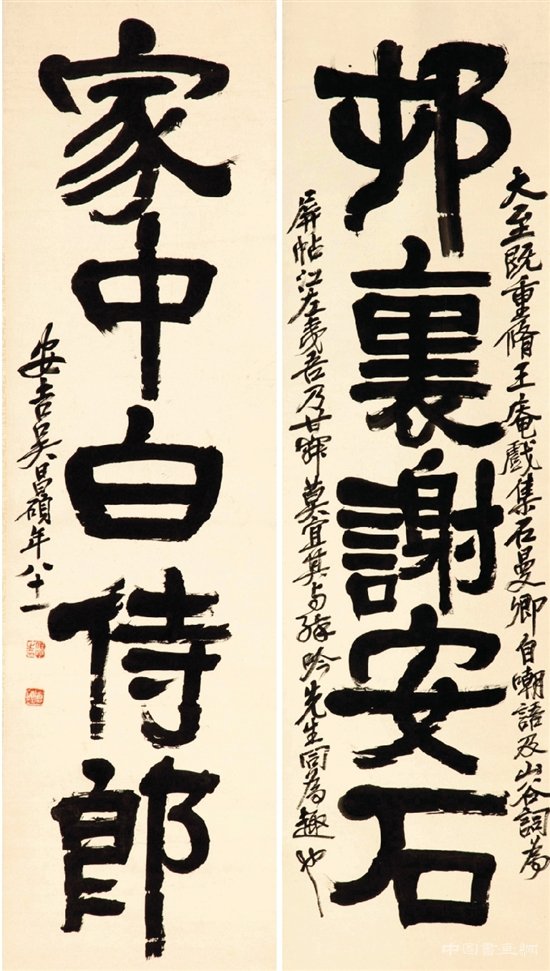 邨裏謝安石
大至既重脩王庵戲集石曼卿自嘲語及山谷詞為
屏帖江左夷吾乃甘
莫宜其与
吟先生同為趣也
家中白侍郎
安吉吳昌碩年八十一
中国書画網